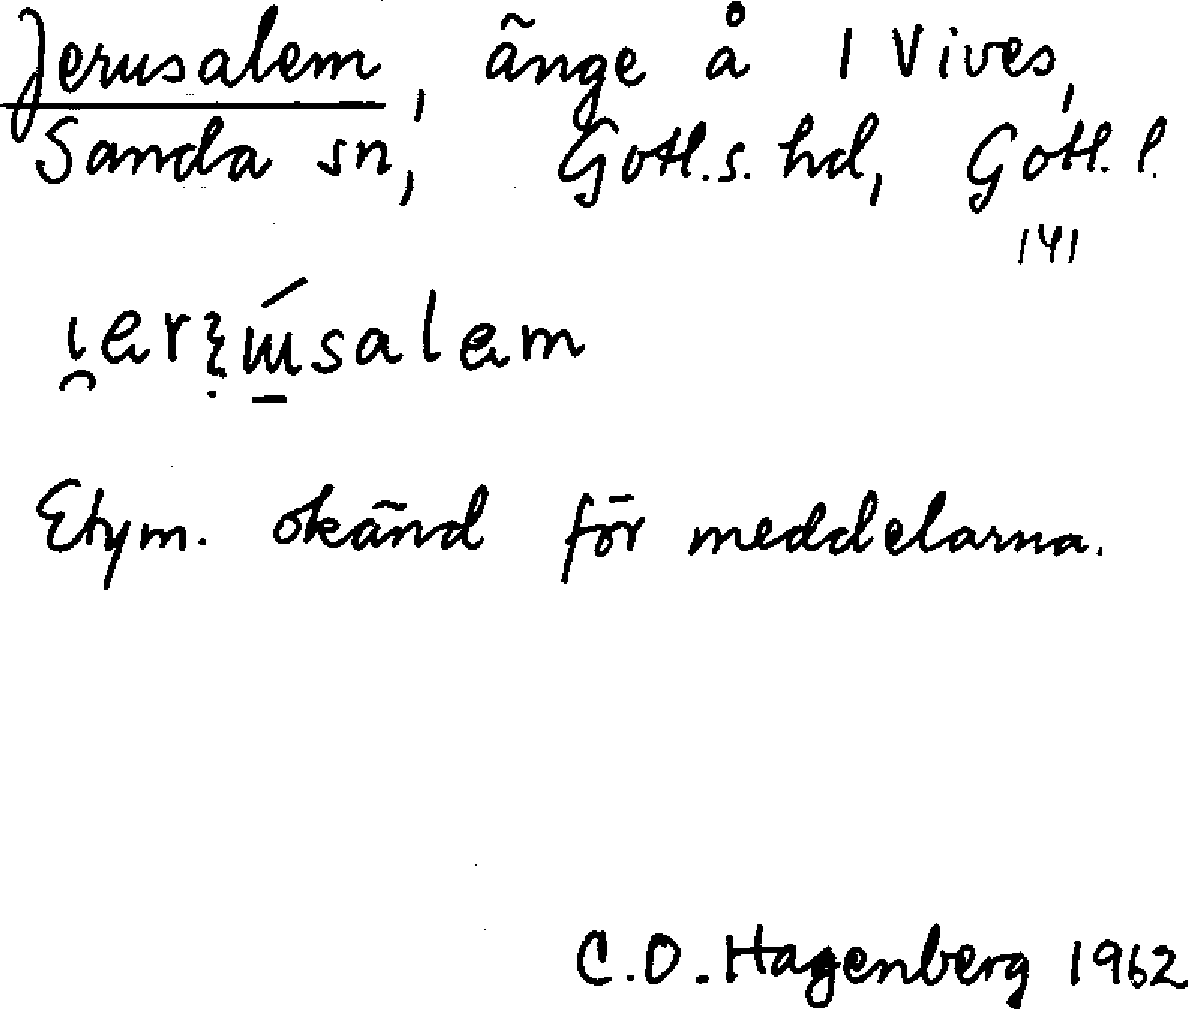 Jerusalem, änge å 1 Vives,
Sanda sn, Gotl.s. hd, Gotl. l.
141
Etym. okänd för meddelarna.
C.O. Hagenberg 1962